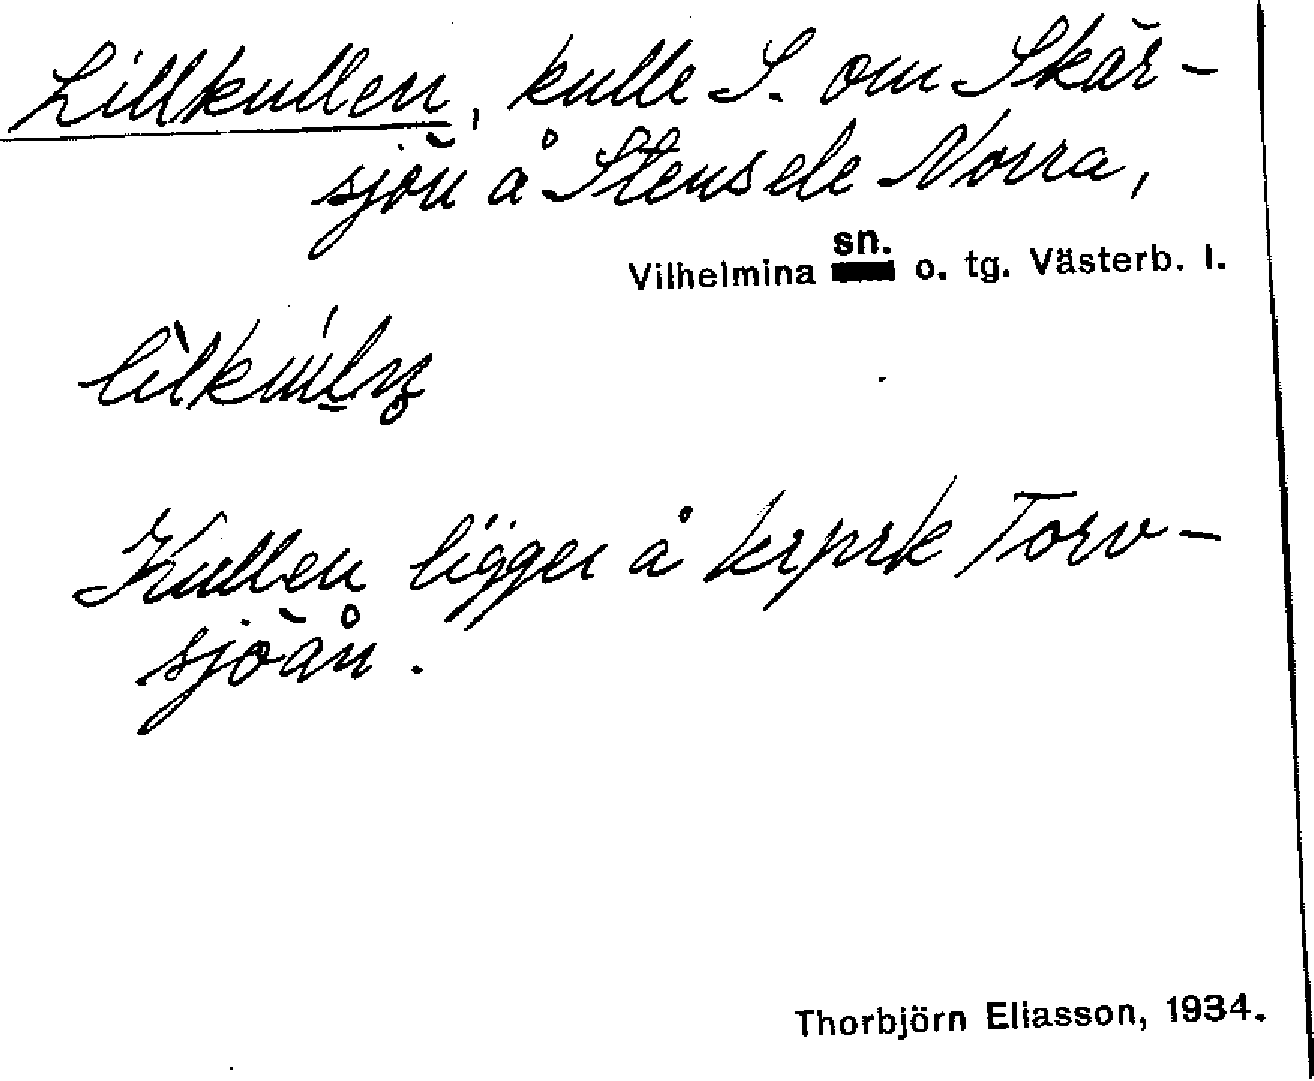 Lillkullen, kulle S. om Skär-
sjön å Stensele Norra,
Vilhelmina sn. o. tg. Västerb. l.
Kullen ligger å krprk Torv-
sjöån.
Thorbjörn Eliasson, 1934.